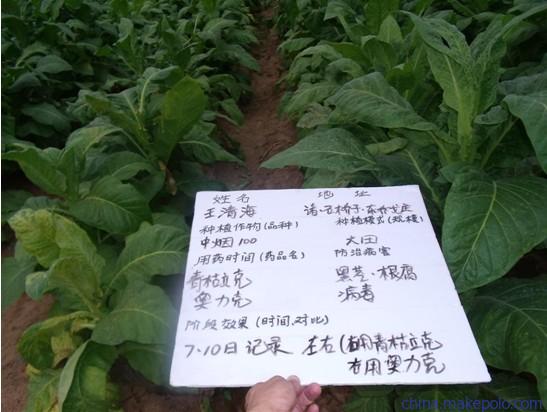 姓名 地址
王清海 诸·石桥子·东
种植作物(品种) 种植模式(规模)
中烟100 大田
用药时间(药品名) 防治病害
青枯立克 黑茎·根腐
奥力克 病毒
阶段效果(时间,对比)
7·10日记录 左右(右用青枯立克
右用奥力克
china.makepolo.com